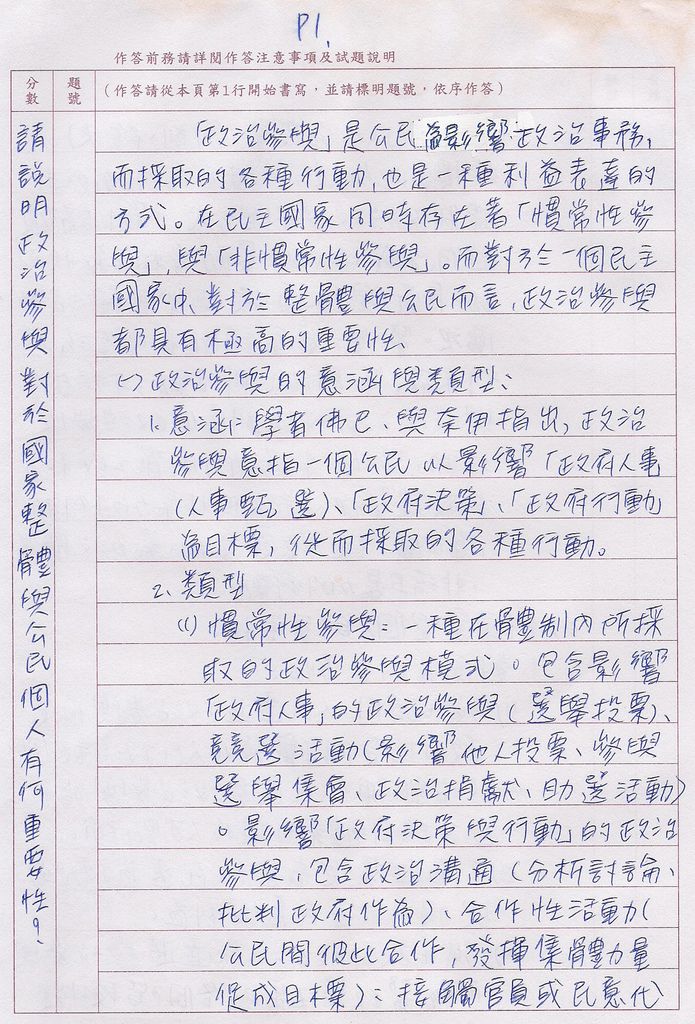 P1.
作答前務請詳閱作答注意事項及試題說明
分數
題號
(作答請從本頁第1行開始書寫,並請標明題號,依序作答)
請說明政治參與對於國家整體與公民個人有何重要性?
「政治參與」是公民為影響政治事務,
而採取的各種行動,也是一種利益表達的
方式。在民主國家同時存在著「慣常性參
與」,與「非慣常性參與」。而對於一個民主
國家中,對於整體與公民而言,政治參與
都具有極高的重要性、
(一)政治參與的意涵與類型:
1. 意涵:學者佛巴、與奈伊指出,政治
參與意指一個公民以影響「政府人事
(人事甄選)、「政府決策」、「政府行動」
為目標,從而採取的各種行動。
2. 類型
(1) 慣常性參與:一種在體制內所採
取的政治參與模式。包含影響
「政府人事」的政治參與(選舉投票)、
競選活動(影響他人投票、參與
選舉集會、政治捐獻、助選活動)
。影響「政府決策與行動」的政治
參與,包含政治溝通(分析討論、
批判政府作為)、合作性活動(
公民間彼此合作,發揮集體力量
促成目標):接觸官員或民意代